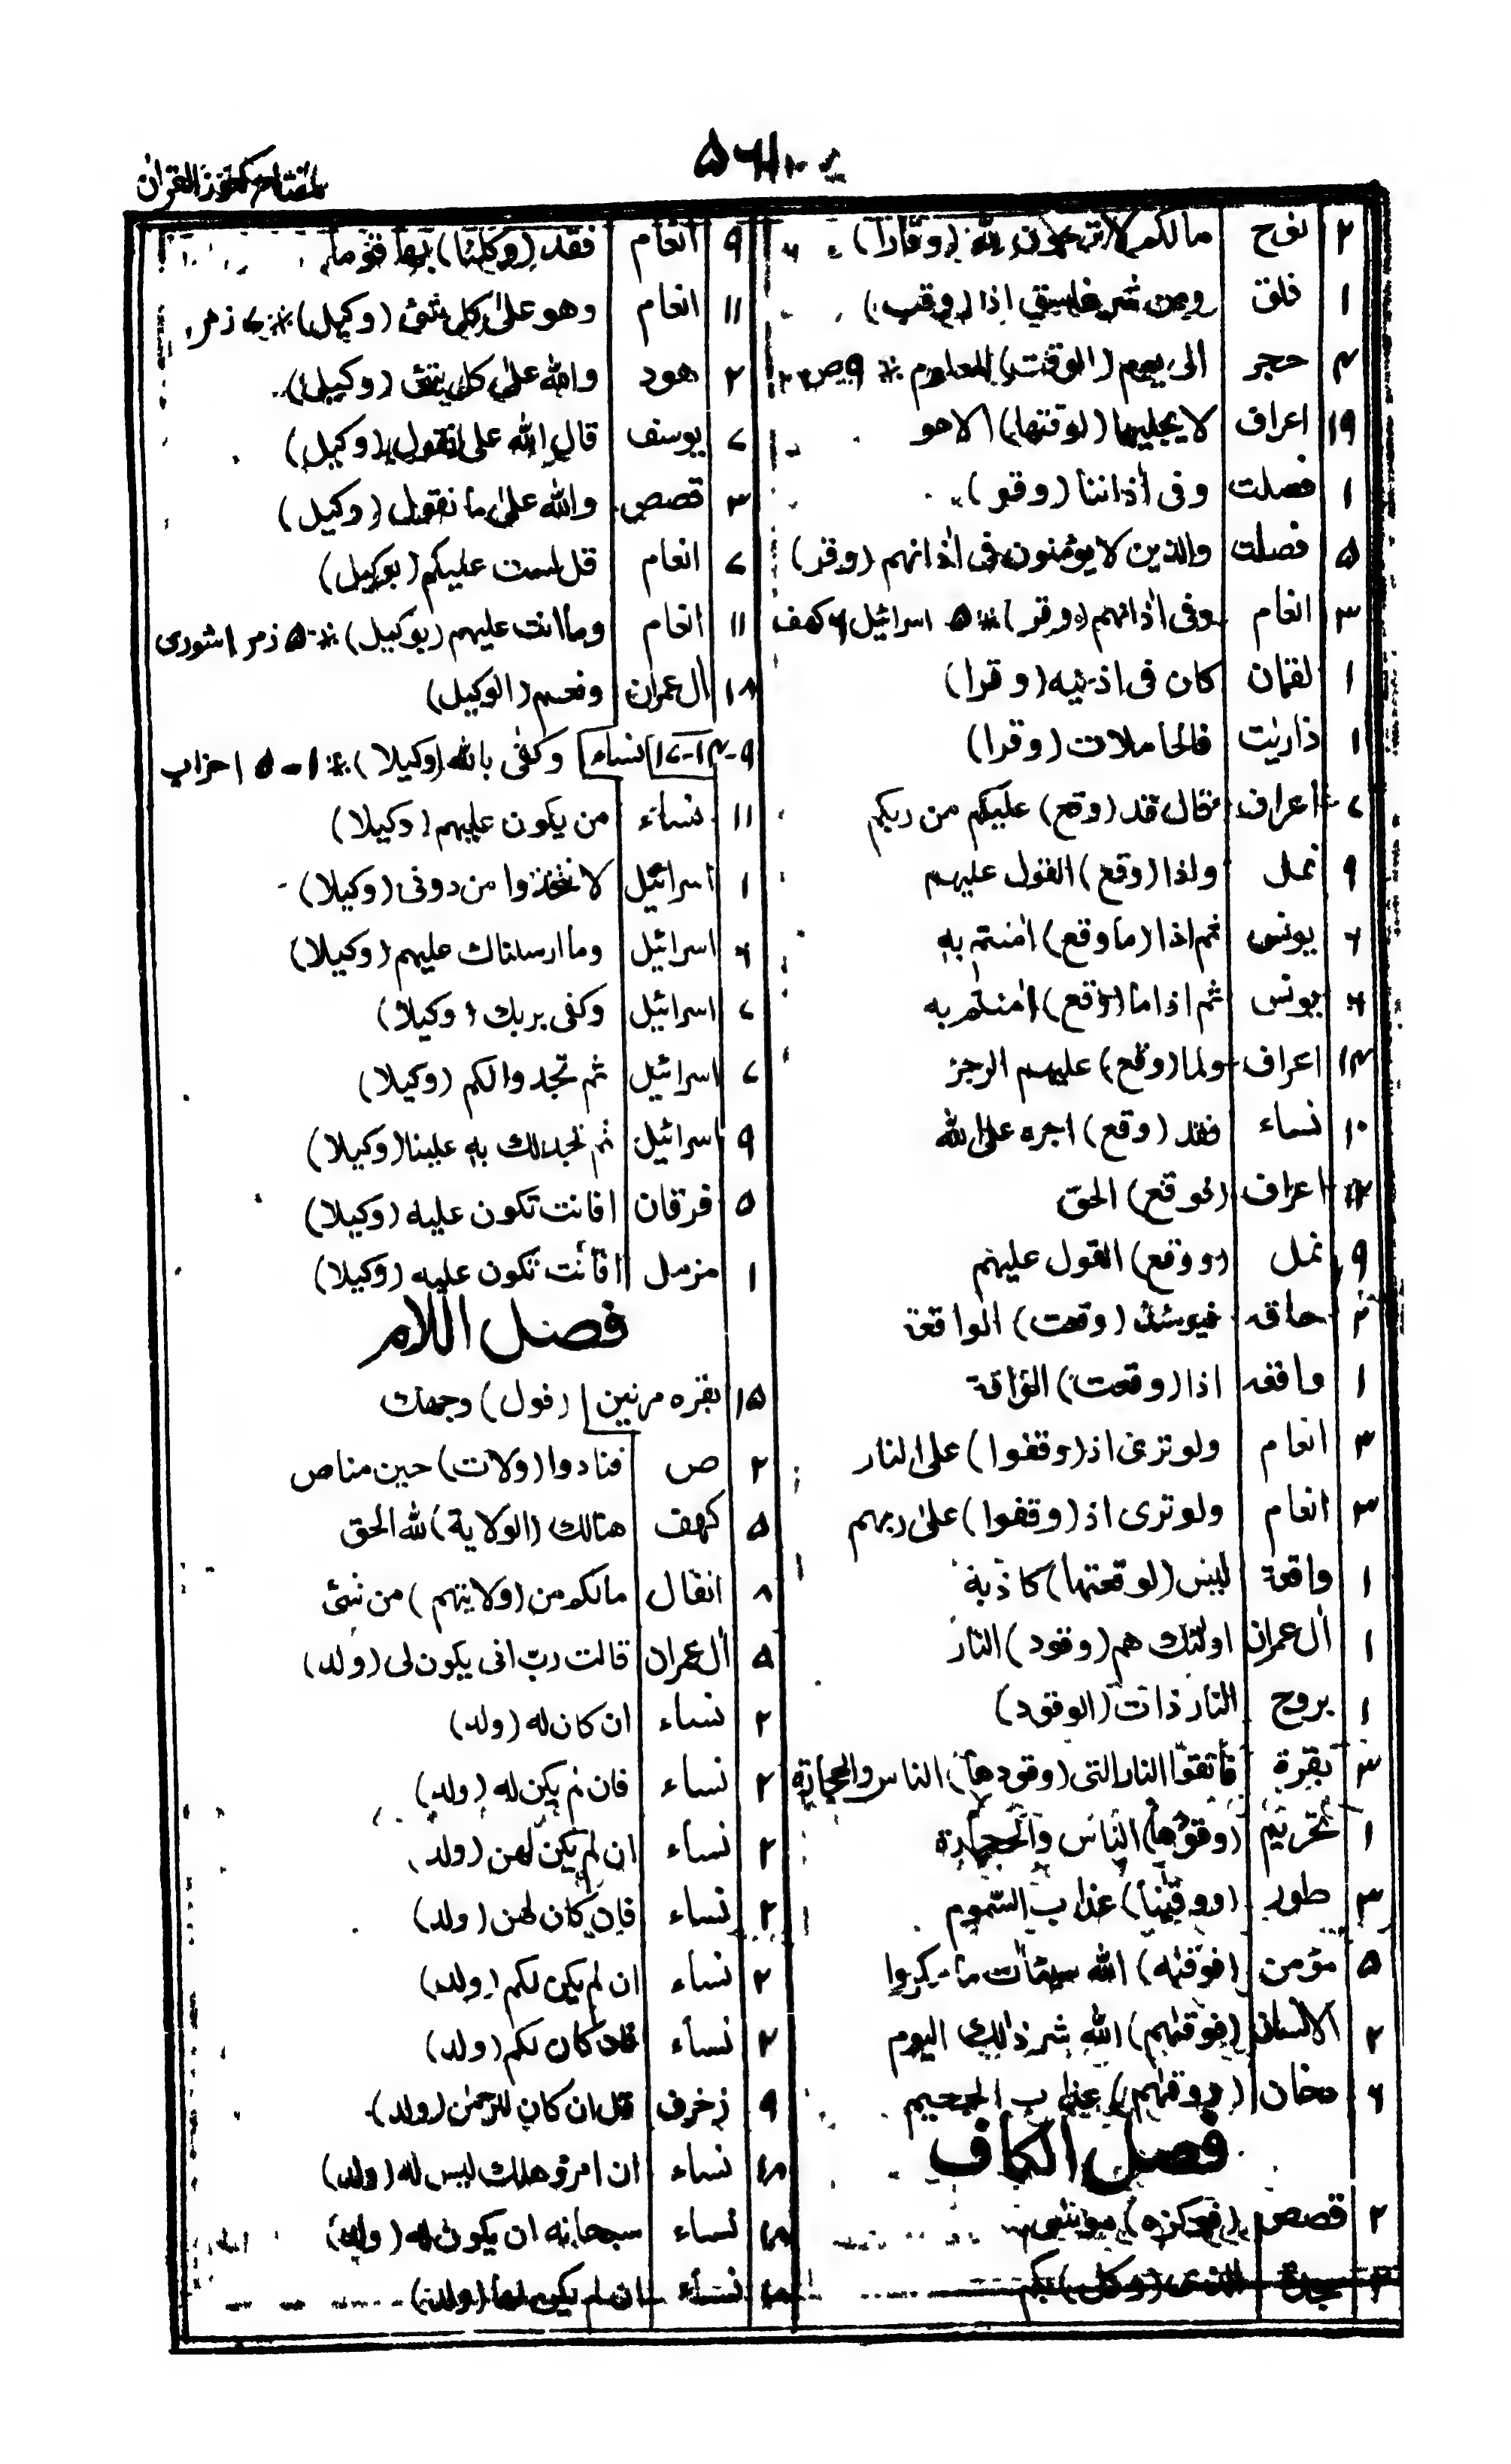 مفتاح كنوز القران
٥٦١
٢ نوح مالكم لا ترجون لله (وقارا)
١ فلق ومن شر غاسق اذا (وقب)
٣ حجر الى يوم (الوقت) المعلوم * ٩ ص
١٩ اعراف لا يجليها (لوقتها) الا هو
١ فصلت وفى أذاننا (وقر)
٥ فصلت والذين لا يؤمنون فى أذانهم (وقر)
٣ انعام وفى أذانهم (وقر) * ٥ اسرائيل ٦ كهف
١ لقمان كان فى اذنيه (وقرا)
١ ذاريت فالحاملات (وقرا)
٧ اعراف فقال قد (وقع) عليكم من ربكم
٩ نمل واذا (وقع) القول عليهم
٦ يونس ثم اذا (ما وقع) امنتم به
٦ يونس ثم اذا ما (وقع) امنتم به
١٣ اعراف ولما (وقع) عليهم الرجز
١٠ نساء فقد (وقع) اجره على الله
اعراف (فوقع) الحق
٩ نمل (ووقع) القول عليهم
٢ حاقه فيومئذ (وقعت) الواقعة
١ واقعه اذا (وقعت) الواقعة
٣ انعام ولو ترى اذ (وقفوا) على النار
٣ انعام ولو ترى اذ (وقفوا) على ربهم
١ واقعة ليس (لوقعتها) كاذبة
١ أل عمران اولئك هم (وقود) النار
١ بروج النار ذات (الوقود)
٣ بقرة فاتقوا النار التى (وقودها) الناس والحجارة
١ تحريم (وقودها) الناس والحجارة
٣ طور (ووقينا) عذاب السموم
٥ مؤمن (فوقيه) الله سيئات ما مكروا
٢ الانسان (فوقيهم) الله شر ذلك اليوم
٦ دخان (ووقيهم) عذاب الجحيم
فصل الكاف
٢ قصص (فوكزه) موسى
سجدة الذى (وكل) بكم
٩ انعام فقد (وكلنا) بها قوما
١١ انعام وهو على كل شئ (وكيل) * ٧ زمر
٢ هود والله على كل شئ (وكيل)
٧ يوسف قال الله على ما نقول (وكيل)
٣ قصص والله على ما نقول (وكيل)
٧ انعام قل لست عليكم (بوكيل)
١١ انعام وما انت عليهم (بوكيل) * ٥ زمر ١ شورى
١٨ أل عمران ونعم (الوكيل)
٩-١٣-١٧ نساء وكفى بالله (وكيلا) * ١-٥ احزاب
١١ نساء من يكون عليهم (وكيلا)
١ اسرائيل لا تتخذوا من دونى (وكيلا)
٦ اسرائيل وما ارسلناك عليهم (وكيلا)
٧ اسرائيل وكفى بربك (وكيلا)
٧ اسرائيل ثم تجدوا لكم (وكيلا)
٩ اسرائيل ثم تجد لك به علينا (وكيلا)
٥ فرقان افانت تكون عليه (وكيلا)
١ مزمل افأنت تكون عليه (وكيلا)
فصل اللام
١٥ بقره مرتين (فول) وجهك
٢ ص فنادوا (ولات) حين مناص
٥ كهف هنالك (الولاية) لله الحق
٨ انفال مالكم من (ولايتهم) من شئ
٥ أل عمران قالت رب انى يكون لى (ولد)
٢ نساء ان كان له (ولد)
٢ نساء فان لم يكن له (ولد)
٢ نساء ان لم يكن لهن (ولد)
٢ نساء فان كان لهن (ولد)
٢ نساء ان لم يكن لكم (ولد)
٢ نسأء فان كان لكم (ولد)
٩ زخرف قل ان كان للرحمن (ولد)
نساء ان امرؤ هلك ليس له (ولد)
نساء سبحانه ان يكون له (ولد)
نسأء ان لم يكن لها (ولد)